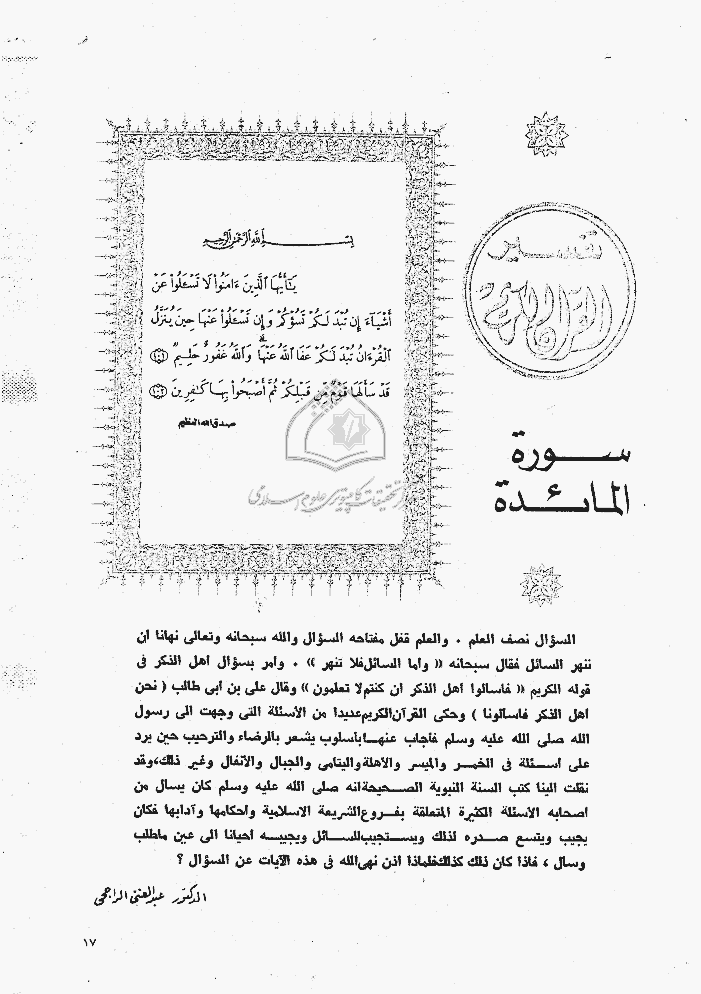 تفسير
القرآن الكريم
سورة
المائدة
بسم الله الرحمن الرحيم
يَٰٓأَيُّهَا ٱلَّذِينَ ءَامَنُوا۟ لَا تَسْـَٔلُوا۟ عَنْ
أَشْيَآءَ إِن تُبْدَ لَكُمْ تَسُؤْكُمْ وَإِن تَسْـَٔلُوا۟ عَنْهَا حِينَ يُنَزَّلُ
ٱلْقُرْءَانُ تُبْدَ لَكُمْ عَفَا ٱللَّهُ عَنْهَا ۗ وَٱللَّهُ غَفُورٌ حَلِيمٌ ﴿١٠١﴾
قَدْ سَأَلَهَا قَوْمٌ مِّن قَبْلِكُمْ ثُمَّ أَصْبَحُوا۟ بِهَا كَٰفِرِينَ ﴿١٠٢﴾
صدق الله العظيم
تحقیقات کامپیوتری علوم اسلامی
السؤال نصف العلم . والعلم قفل مفتاحه السؤال والله سبحانه وتعالى نهانا ان
ننهر السائل فقال سبحانه « واما السائل فلا تنهر » . وامر بسؤال اهل الذكر فى
قوله الكريم « فاسألوا اهل الذكر ان كنتم لا تعلمون » وقال على بن ابى طالب ( نحن
اهل الذكر فاسألونا ) وحكى القرآن الكريم عديدا من الأسئلة التى وجهت الى رسول
الله صلى الله عليه وسلم فأجاب عنها بأسلوب يشعر بالرضاء والترحيب حين يرد
على اسئلة فى الخمر والميسر والأهلة واليتامى والجبال والأنفال وغير ذلك، وقد
نقلت الينا كتب السنة النبوية الصحيحة انه صلى الله عليه وسلم كان يسأل من
اصحابه الأسئلة الكثيرة المتعلقة بفروع الشريعة الاسلامية واحكامها وآدابها فكان
يجيب ويتسع صدره لذلك ويستجيب للسائل ويجيبه احيانا الى عين ماطلب
وسأل ، فاذا كان ذلك كذلك فلماذا اذن نهى الله فى هذه الآيات عن السؤال ؟
الدكتور عبد الغنى الراجحى
١٧